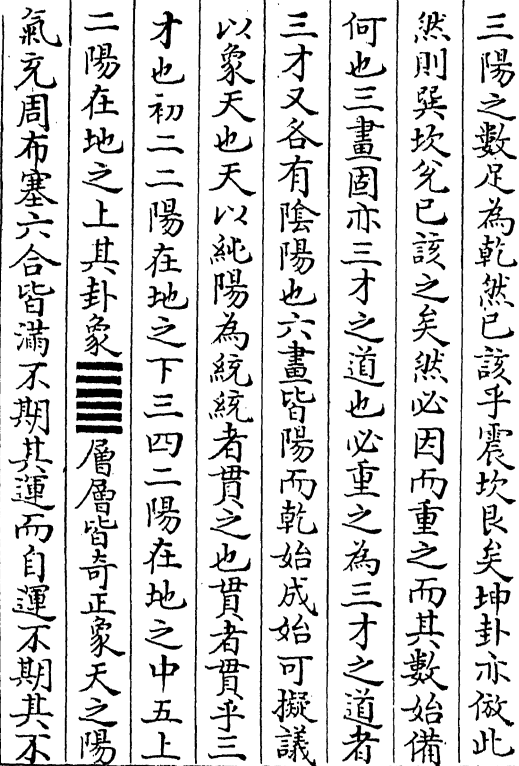 三陽之數足為乾然已該乎震坎艮矣坤卦亦倣此
然則巽坎兌已該之矣然必因而重之而其數始備
何也三畫固亦三才之道也必重之為三才之道者
三才又各有陰陽也六畫皆陽而乾始成始可擬議
以象天也天以純陽為統統者貫之也貫者貫乎三
才也初二二陽在地之下三四二陽在地之中五上
二陽在地之上其卦象䷀層層皆奇正象天之陽
氣充周布塞六合皆滿不期其運而自運不期其不